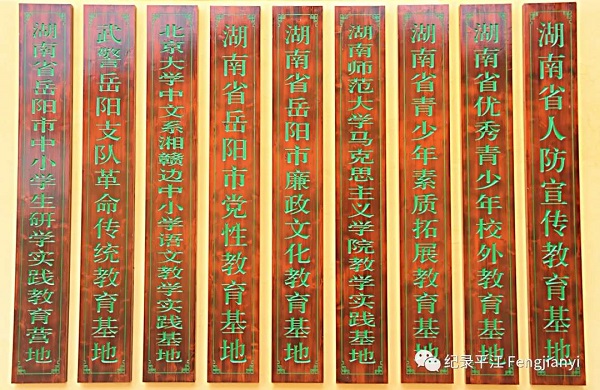 湖南省岳阳市中小学生研学实践教育营地
武警岳阳支队革命传统教育基地
北京大学中文系湘赣边中小学语文教学实践基地
湖南省岳阳市党性教育基地
湖南省岳阳市廉政文化教育基地
湖南师范大学马克思主义学院教学实践基地
湖南省青少年素质拓展教育基地
湖南省优秀青少年校外教育基地
湖南省人防宣传教育基地
纪录平江-Fengjianyi